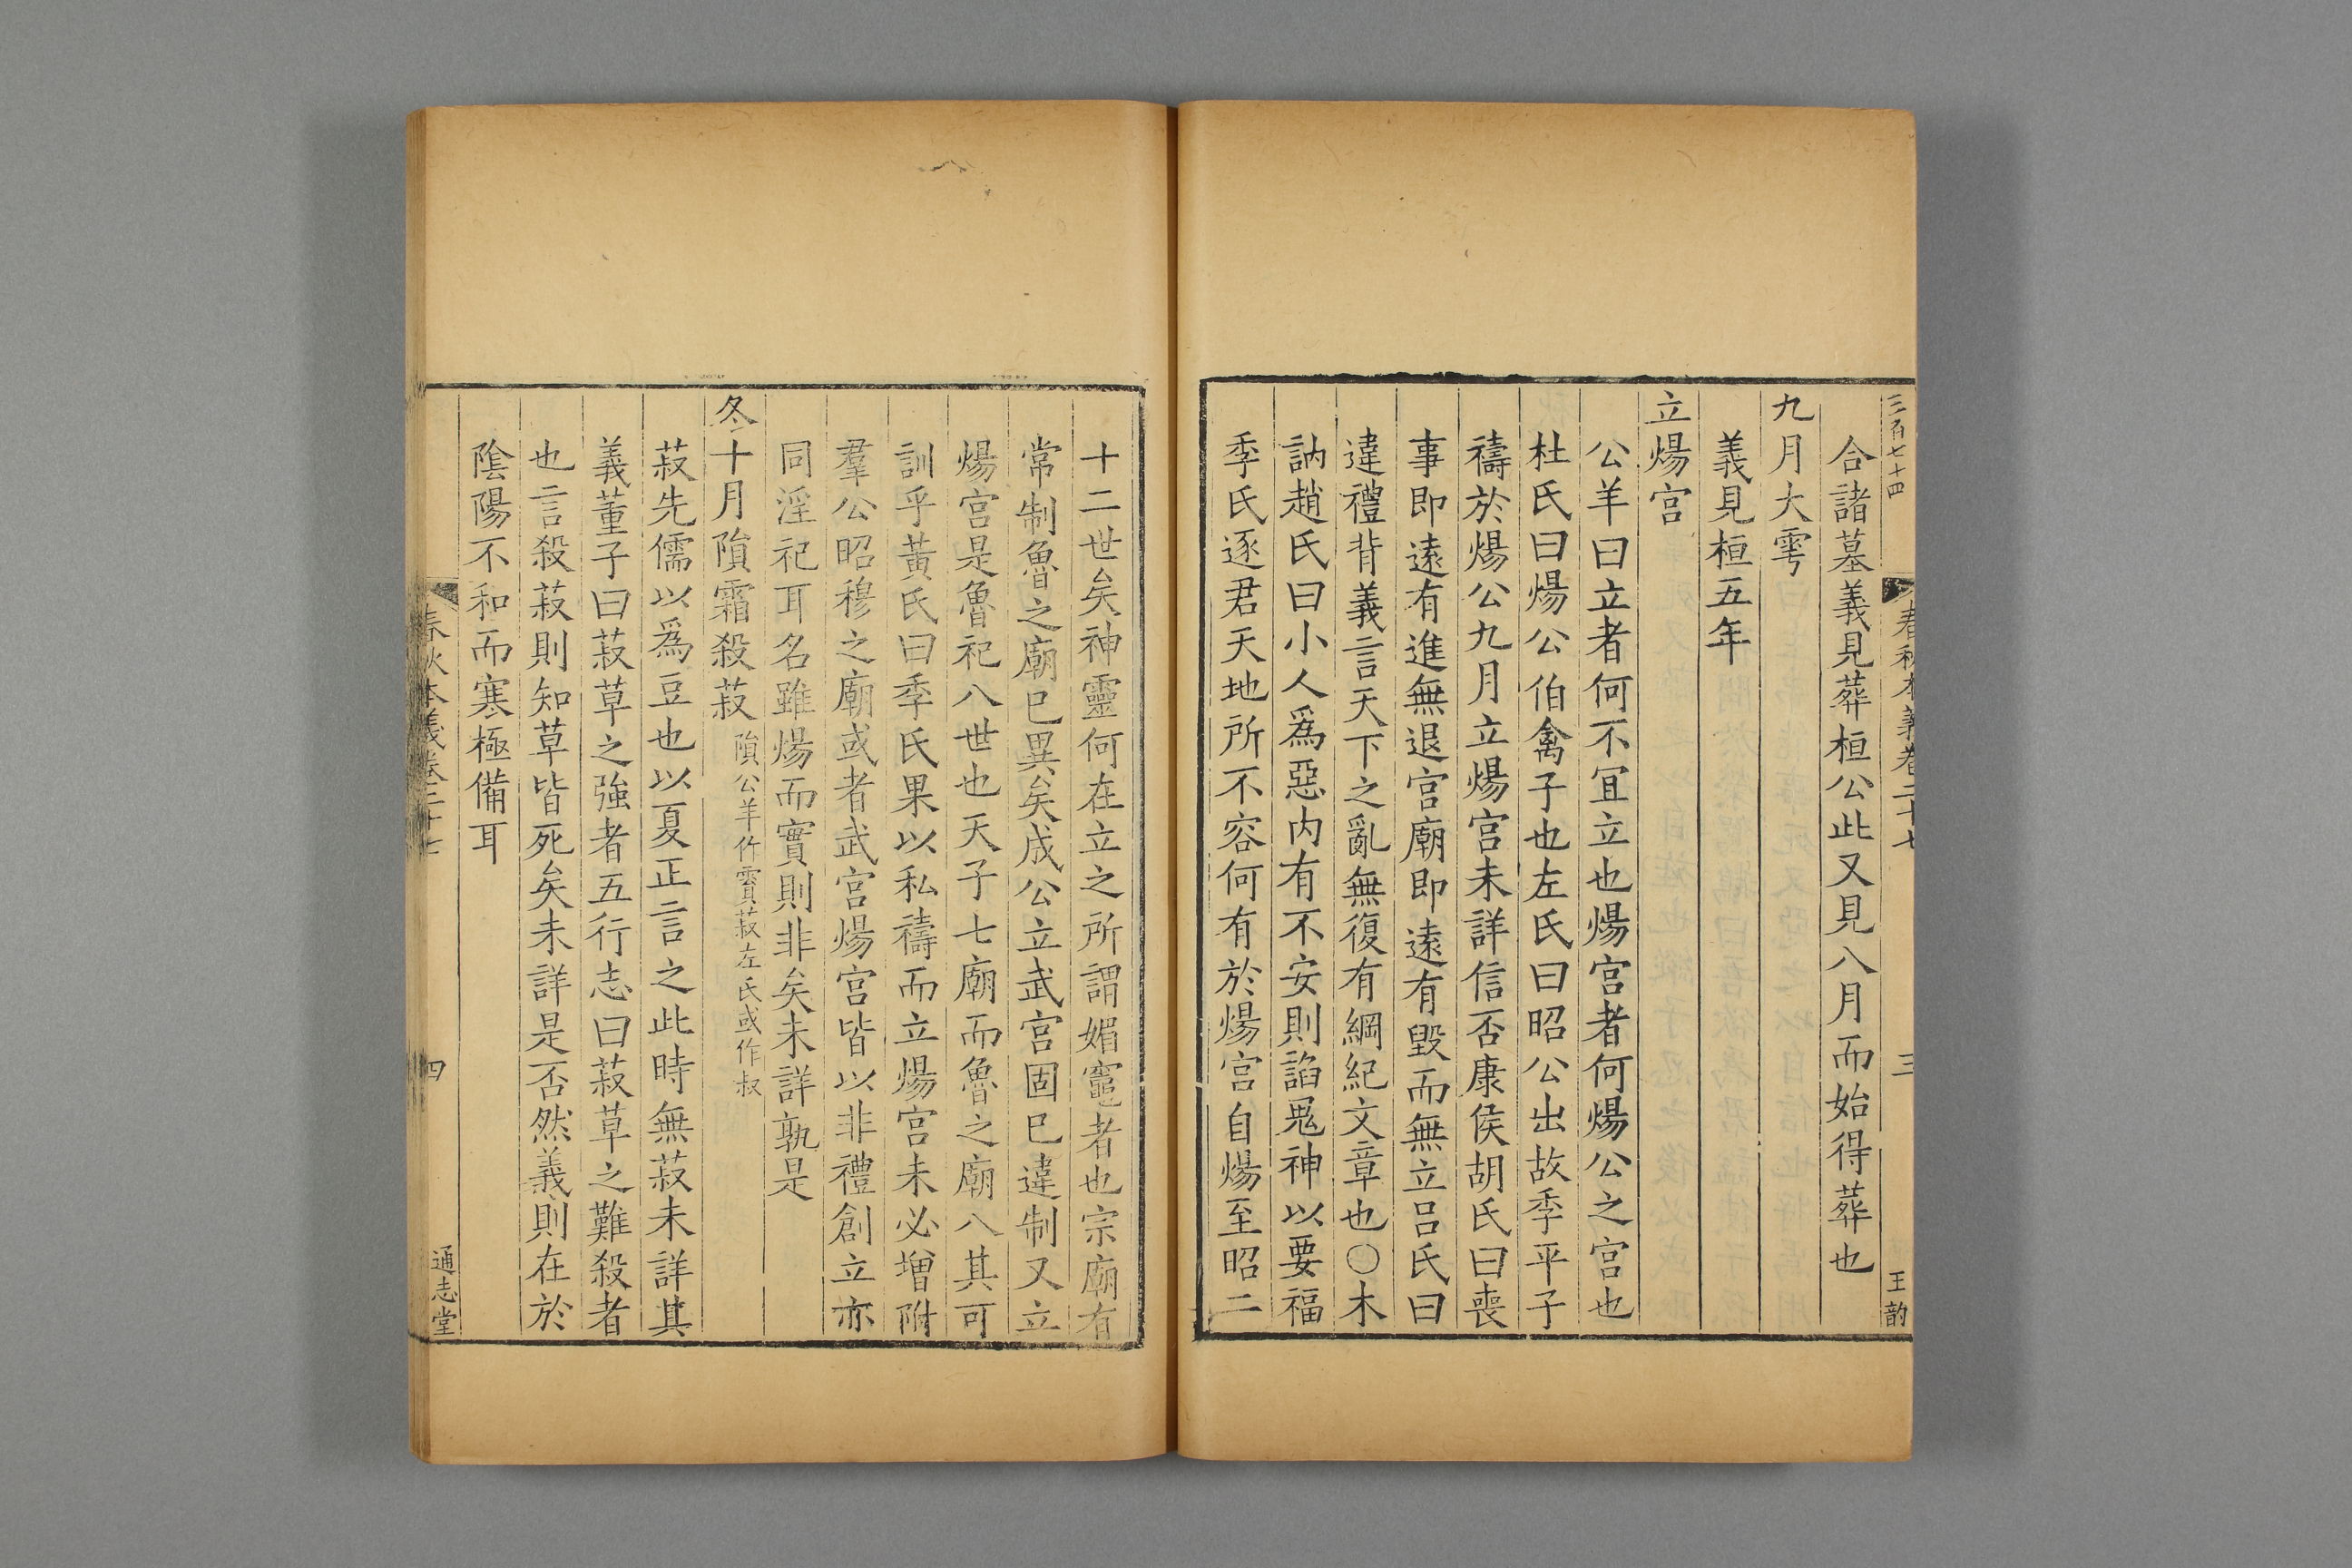 三百七十四
春秋本義卷二十七
三
王韵
合諸墓義見葬桓公此又見八月而始得葬也
九月大雩
義見桓五年
立煬宮
公羊曰立者何不宜立也煬宮者何煬公之宮也
杜氏曰煬公伯禽子也左氏曰昭公出故季平子
禱於煬公九月立煬宮未詳信否康侯胡氏曰喪
事即遠有進無退宮廟即遠有毀而無立呂氏曰
違禮背義言天下之亂無復有綱紀文章也〇木
訥趙氏曰小人爲惡内有不安則諂鬼神以要福
季氏逐君天地所不容何有於煬宮自煬至昭二
十二世矣神靈何在立之所謂媚竈者也宗廟有
常制魯之廟已異矣成公立武宮固已違制又立
煬宮是魯祀八世也天子七廟而魯之廟八其可
訓乎黃氏曰季氏果以私禱而立煬宮未必增附
羣公昭穆之廟或者武宮煬宮皆以非禮創立亦
同淫祀耳名雖煬而實則非矣未詳孰是
冬十月隕霜殺菽隕公羊作霣菽左氏或作叔
菽先儒以爲豆也以夏正言之此時無菽未詳其
義董子曰菽草之強者五行志曰菽草之難殺者
也言殺菽則知草皆死矣未詳是否然義則在於
陰陽不和而寒極備耳
春秋本義卷二十七
四
通志堂